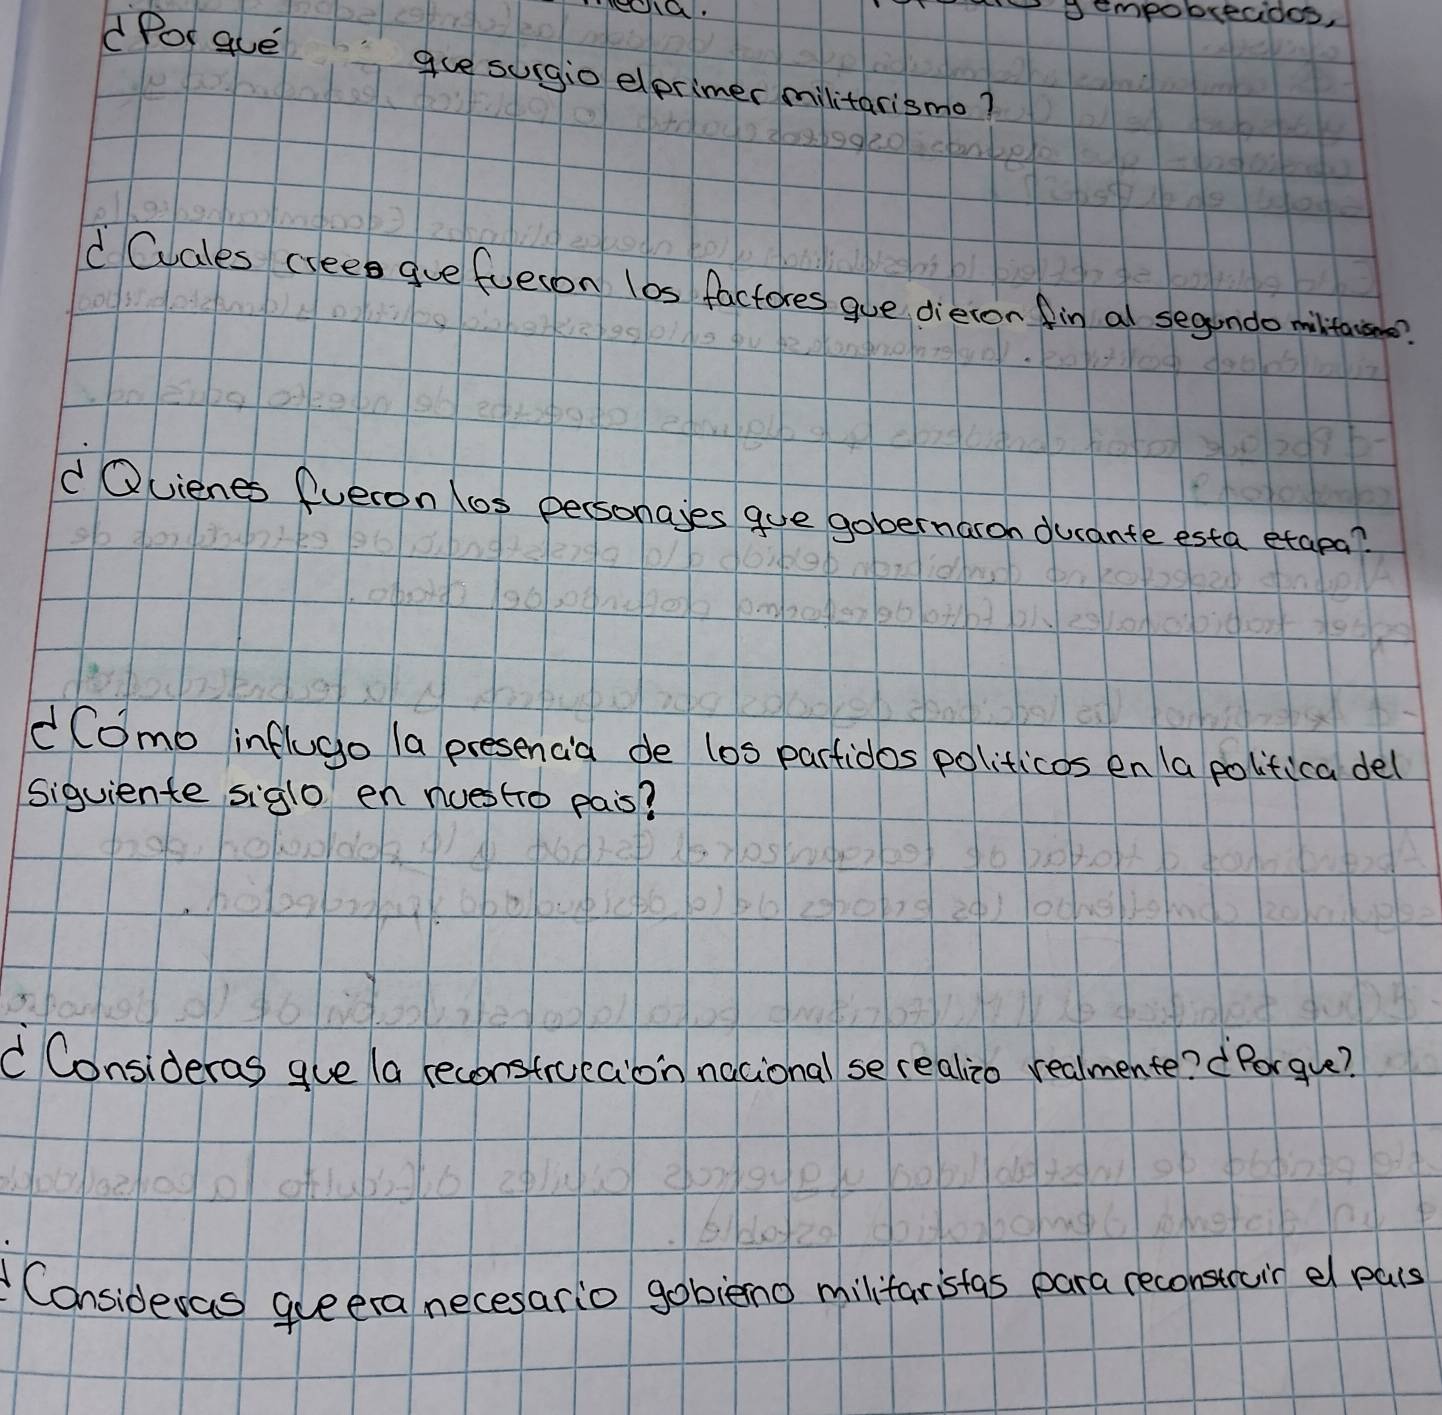 empobrecidos,
¿Por qué que surgio el primer militarismo?
¿Cuales crees que fueron los factores que dieron fin al segundo militarismo?
¿Quienes fueron los personajes que gobernaron durante esta etapa?
¿Cómo influyo la presencia de los partidos politicos en la politica del
siguiente siglo en nuestro pais?
¿Consideras que la reconstrucción nacional se realizo realmente? ¿Porque?
¿Consideras que era necesario gobierno militaristas para reconstruir el pais